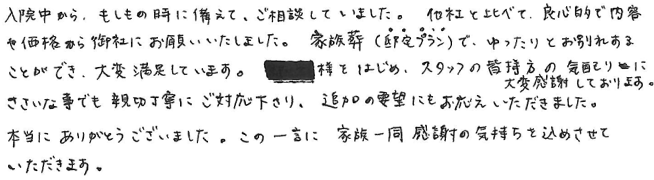 入院中から、もしもの時に備えて、ご相談していました。他社と比べて、良心的で内容
や価格から御社にお願いいたしました。家族葬(邸宅プラン)で、ゆったりとお別れする
ことができ、大変満足しています。様をはじめ、スタッフの皆様方の気配りに
大変感謝しております。
ささいな事でも親切丁寧にご対応下さり、追加の要望にもお応えいただきました。
本当にありがとうございました。この一言に家族一同感謝の気持ちを込めさせて
いただきます。